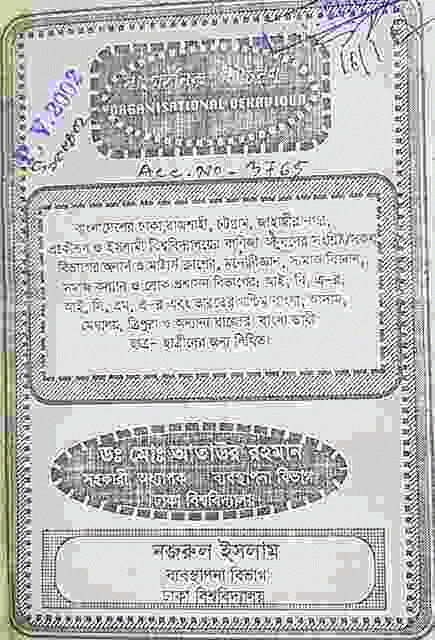 ORGANISATIONAL BEHAVIOUR
Acc. No - 3765
বাংলাদেশের ঢাকা, রাজশাহী, চট্টগ্রাম, জাহাঙ্গীর নগর,
ও ইসলামী বিশ্ববিদ্যালয়ের বাণিজ্য
বিভাগের অনার্স ও মাস্টার্স ক্লাশের, মনোবিজ্ঞান, সমাজ বিজ্ঞান,
সমাজ কল্যাণ ও লোক প্রশাসন বিভাগের; আই, বি, এ-র;
আই, সি, এম, এ-র এবং ভারতের পশ্চিম বাংলা, আসাম,
মেঘালয়, ত্রিপুরা ও অন্যান্য রাজ্যের বাংলা ভাষী
ছাত্র-ছাত্রীদের জন্য লিখিত।
ডঃ মোঃ আতাউর রহমান
সহকারী অধ্যাপক ব্যবস্থাপনা বিভাগ
ঢাকা বিশ্ববিদ্যালয়
নজরুল ইসলাম
ব্যবস্থাপনা বিভাগ
ঢাকা বিশ্ববিদ্যালয়